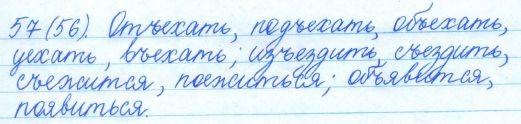 57(56). Отъехать, подъехать, объехать,
уехать, въехать; изъездить, съездить,
съежится, поежиться; объявится,
появиться.